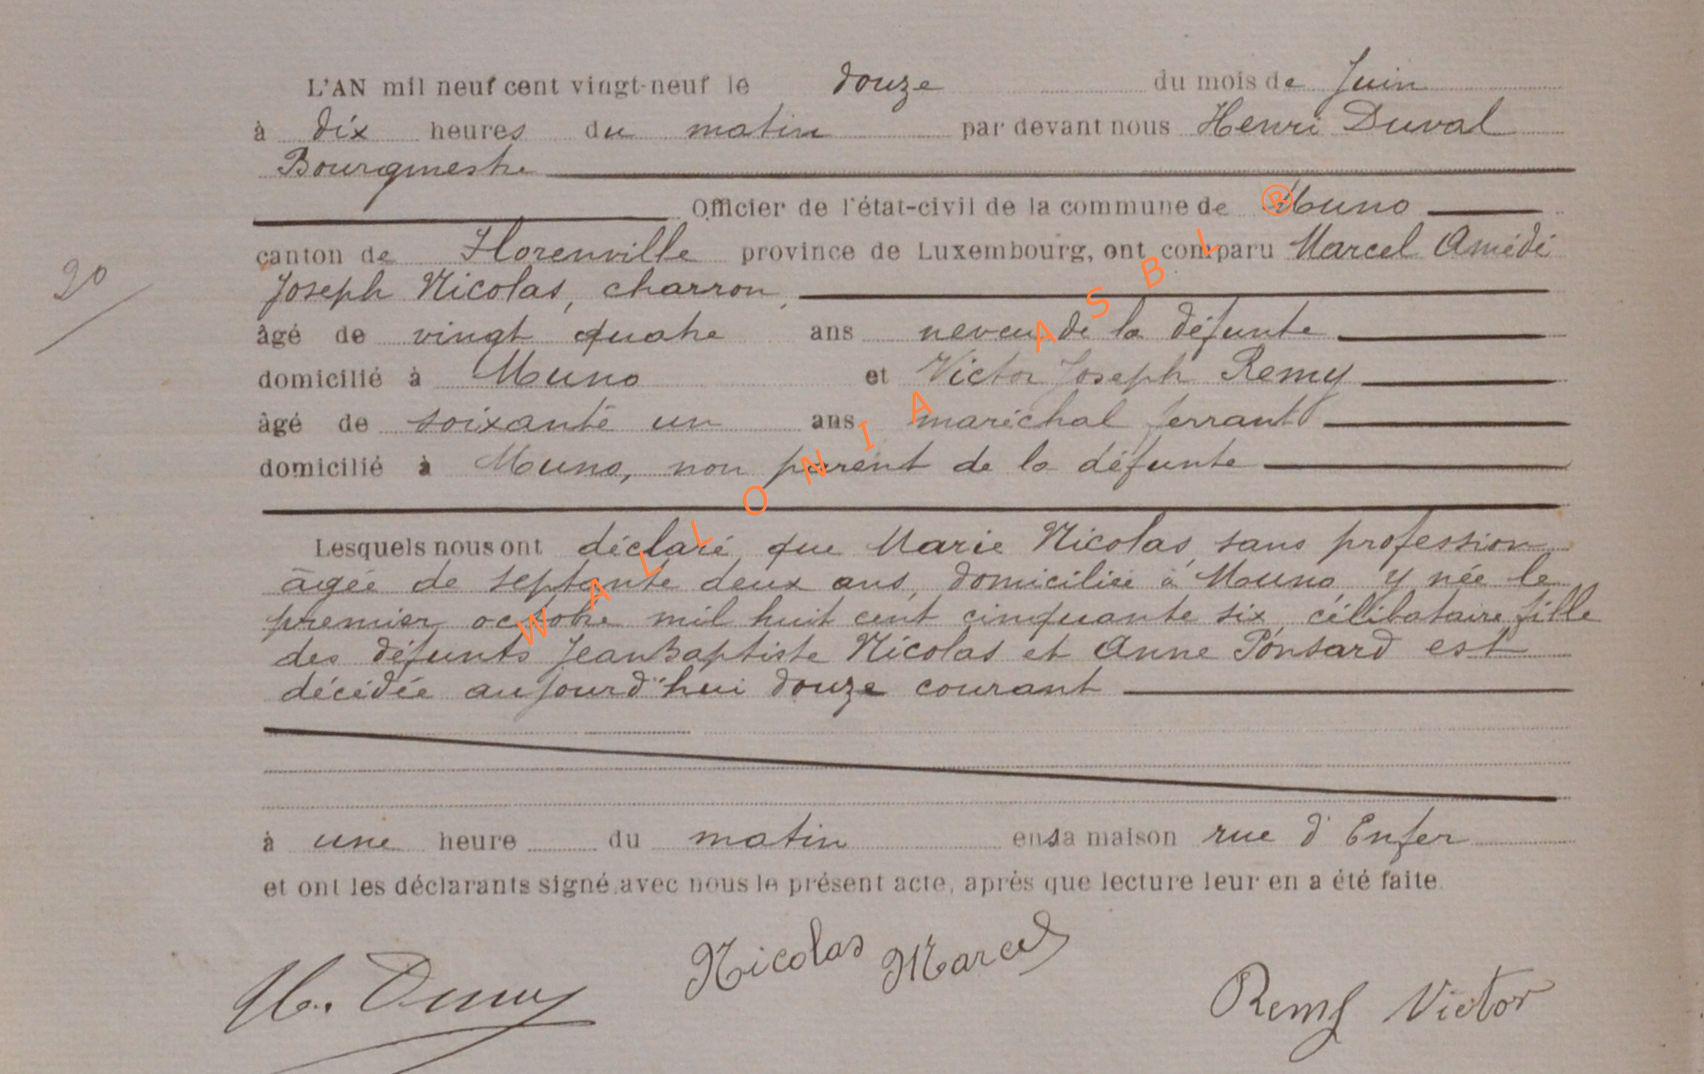 L'AN mil neuf cent vingt-neuf le douze du mois de Juin
à dix heures du matin par devant nous Henri Duval
Bourgmestre
Officier de l'état-civil de la commune de Muno
canton de Florenville province de Luxembourg, ont comparu Marcel Amédé
20
Joseph Nicolas, charron,
âgé de vingt quatre ans neveu de la défunte
domicilié à Muno et Victor Joseph Remy
âgé de soixante un ans maréchal ferrant
domicilié à Muno, non parent de la défunte
Lesquels nous ont déclaré que Marie Nicolas, sans profession
âgée de septante deux ans, domiciliée à Muno, y née le
premier octobre mil huit cent cinquante six, célibataire, fille
des défunts Jean Baptiste Nicolas et Anne Ponsard est
décédée aujourd'hui douze courant
à une heure du matin en sa maison rue d'Enfer
et ont les déclarants signé avec nous le présent acte, après que lecture leur en a été faite.
H. Duval
Nicolas Marcel
Remy Victor
WALLONIA ASBL ®